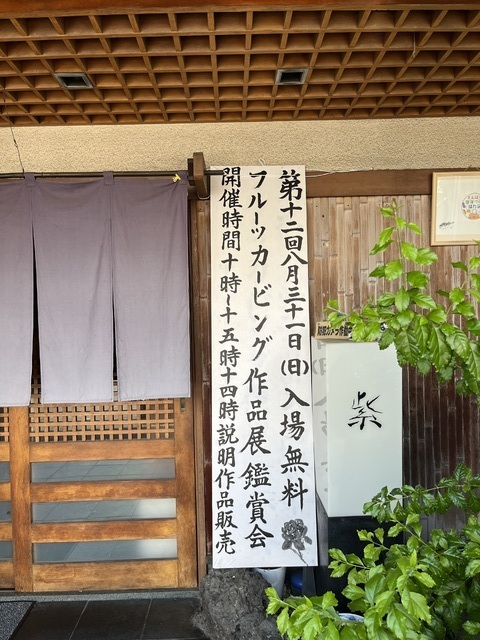 第十二回八月三十一日(日)入場無料
フルーツカービング作品展鑑賞会
開催時間十時~十五時十四時説明作品販売
防犯カメラ作動中
紫